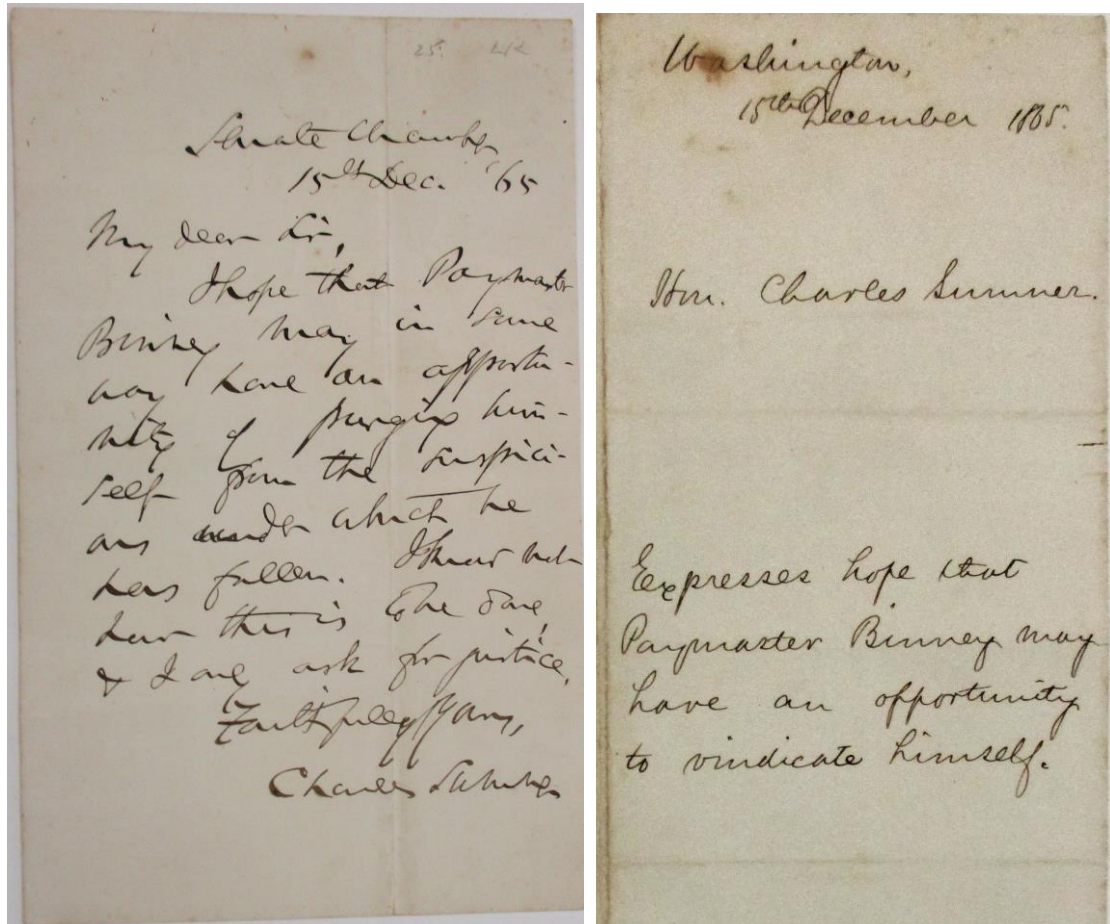 25.
Senate Chamber
15th Dec. '65
My dear Sir,
I hope that Paymaster
Binney may in some
way have an opportu-
nity of purging him-
self from the suspici-
ons under which he
has fallen. I know not
how this is to be done,
& I only ask for justice.
Faithfully Yours,
Charles Sumner
Washington,
15th December 1865.
Hon. Charles Sumner.
Expresses hope that
Paymaster Binney may
have an opportunity
to vindicate himself.